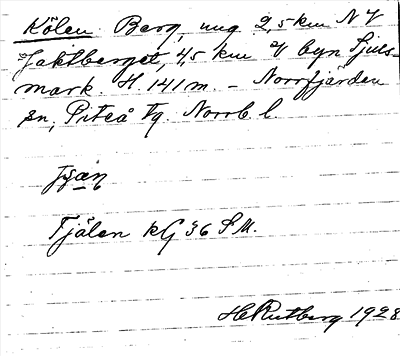 Kölen Berg, ung 2,5 km NV
Jaktberget, 4,5 km V byn Sjuls-
mark. H. 141 m. - Norrfjärden
sn, Piteå tg. Norrb. l.
Tjälen kG 36 S M.
H Rutberg 1928